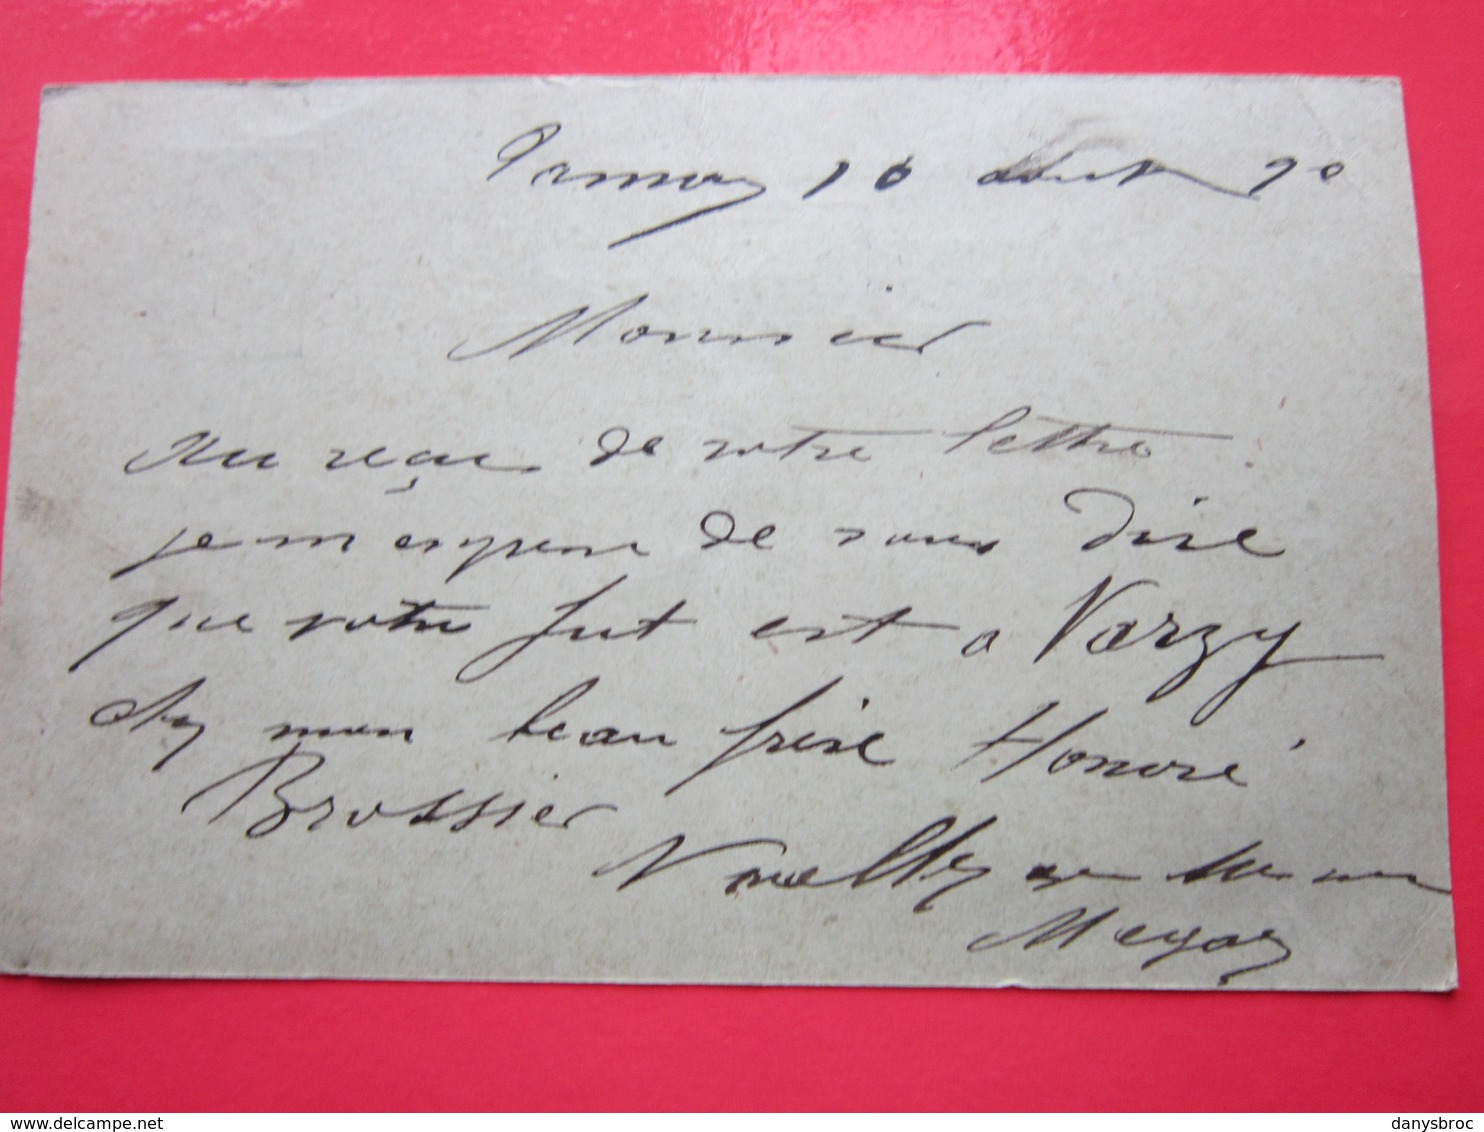 16 Aout 90
Monsieur
Au reçu de votre lettre
je m'empresse de vous dire
que votre fut est a Varzy
chez mon beau frere Honoré
Brossier
Veuillez
delcampe.net
danysbroc